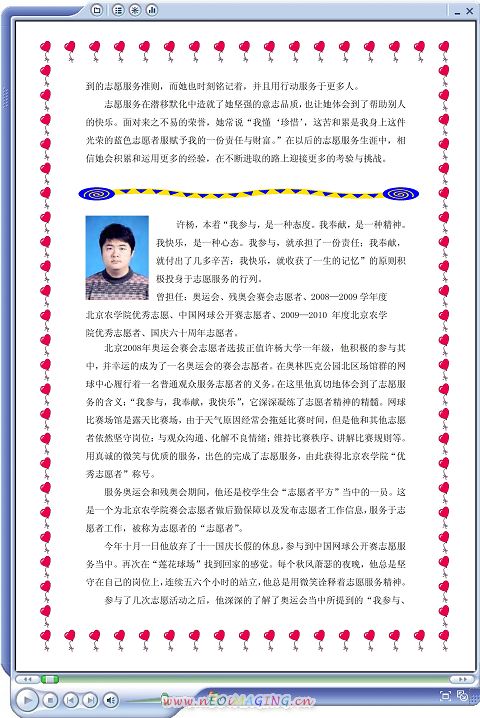 到的志愿服务准则，而她也时刻铭记着，并且用行动服务于更多人。
志愿服务在潜移默化中造就了她坚强的意志品质，也让她体会到了帮助别人
的快乐。面对来之不易的荣誉，她常说“我懂‘珍惜’，这苦和累是我身上这件
光荣的蓝色志愿者服赋予我的一份责任与财富。”在以后的志愿服务生涯中，相
信她会积累和运用更多的经验，在不断进取的路上迎接更多的考验与挑战。
许杨，本着“我参与，是一种态度。我奉献，是一种精神。
我快乐，是一种心态。我参与，就承担了一份责任；我奉献，
就付出了几多辛苦；我快乐，就收获了一生的记忆”的原则积
极投身于志愿服务的行列。
曾担任：奥运会、残奥会赛会志愿者、2008—2009学年度
北京农学院优秀志愿、中国网球公开赛志愿者、2009—2010 年度北京农学
院优秀志愿者、国庆六十周年志愿者。
北京2008年奥运会赛会志愿者选拔正值许杨大学一年级，他积极的参与其
中，并幸运的成为了一名奥运会的赛会志愿者。在奥林匹克公园北区场馆群的网
球中心履行着一名普通观众服务志愿者的义务。在这里他真切地体会到了志愿服
务的含义：“我参与，我奉献，我快乐”，它深深凝练了志愿者精神的精髓。网球
比赛场馆是露天比赛场，由于天气原因经常会拖延比赛时间，但是他和其他志愿
者依然坚守岗位；与观众沟通、化解不良情绪；维持比赛秩序、讲解比赛规则等。
用真诚的微笑与优质的服务，出色的完成了志愿服务，由此获得北京农学院“优
秀志愿者”称号。
服务奥运会和残奥会期间，他还是校学生会“志愿者平方”当中的一员。这
是一个为北京农学院赛会志愿者做后勤保障以及发布志愿者工作信息，服务于志
愿者工作，被称为志愿者的“志愿者”。
今年十月一日他放弃了十一国庆长假的休息，参与到中国网球公开赛志愿服
务当中。再次在“莲花球场”找到回家的感觉。每个秋风萧瑟的夜晚，他总是坚
守在自己的岗位上，连续五六个小时的站立，他总是用微笑诠释着志愿服务精神。
参与了几次志愿活动之后，他深深的了解了奥运会当中所提到的“我参与、
www.nEOiMAGING.cn